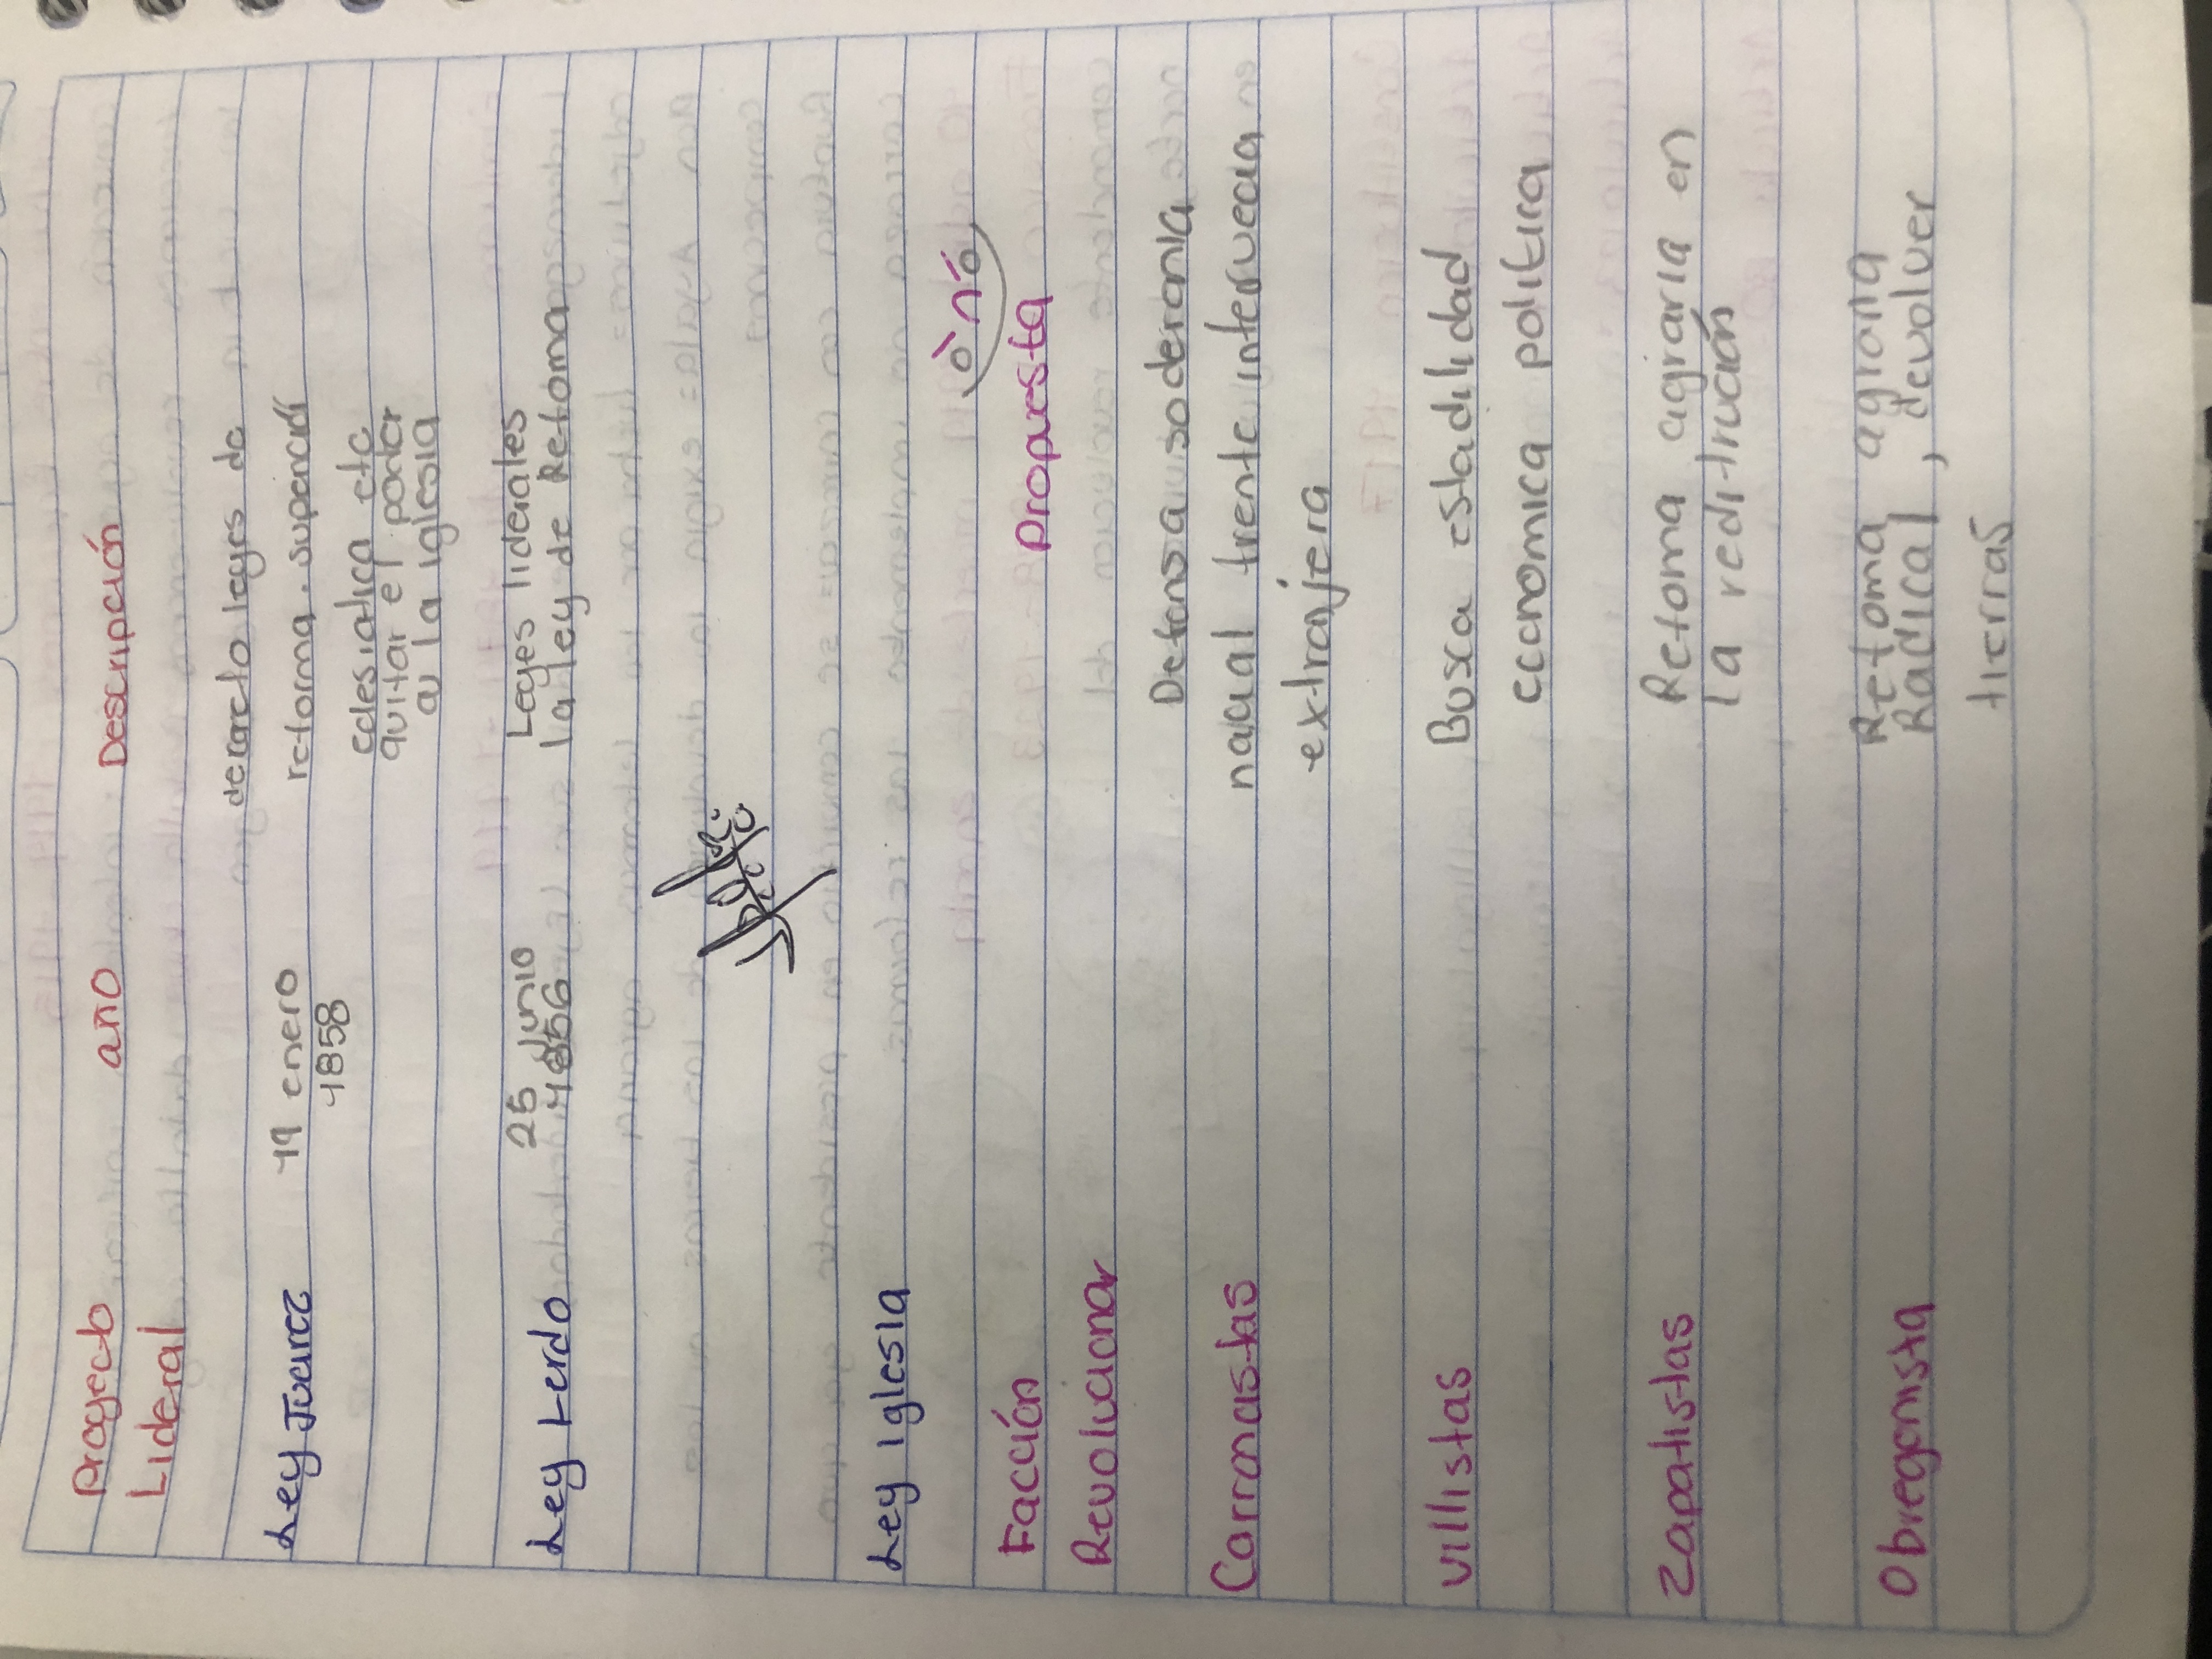 Proyecto año Descripción
Liberal
decreto leyes de
Ley Juarez 19 enero reforma. supencifi
1858 eclesiatica etc
quitar el poder
a la iglesia
25 Junio Leyes liberales
Ley Lerdo 1856 la ley de Reforma
Ley Iglesia
ó n ó
Facción Propuesta
Revolucionar
Defensa soberania
Carrancistas nacional frente intervecia
extrajera
Villistas Busca estabilidad
economica politica
Zapatistas Reforma agraria en
la reditrución
Reforma agraria
Obregonista Radical, devolver
tierras